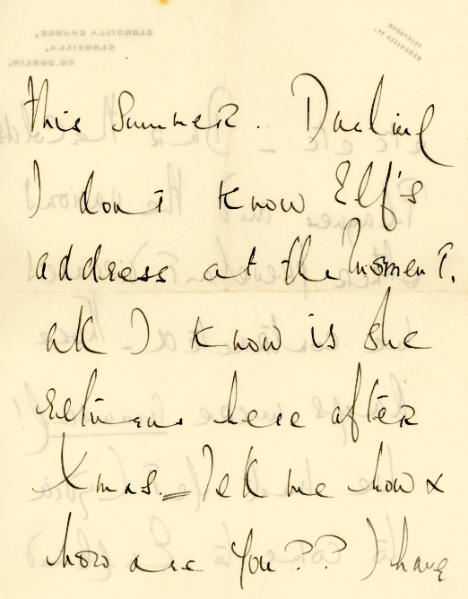 this Summer. Darling
I don't know Elf's
address at the moment.
all I know is she
returns here after
Xmas. = Tell me how &
how are you?? I have